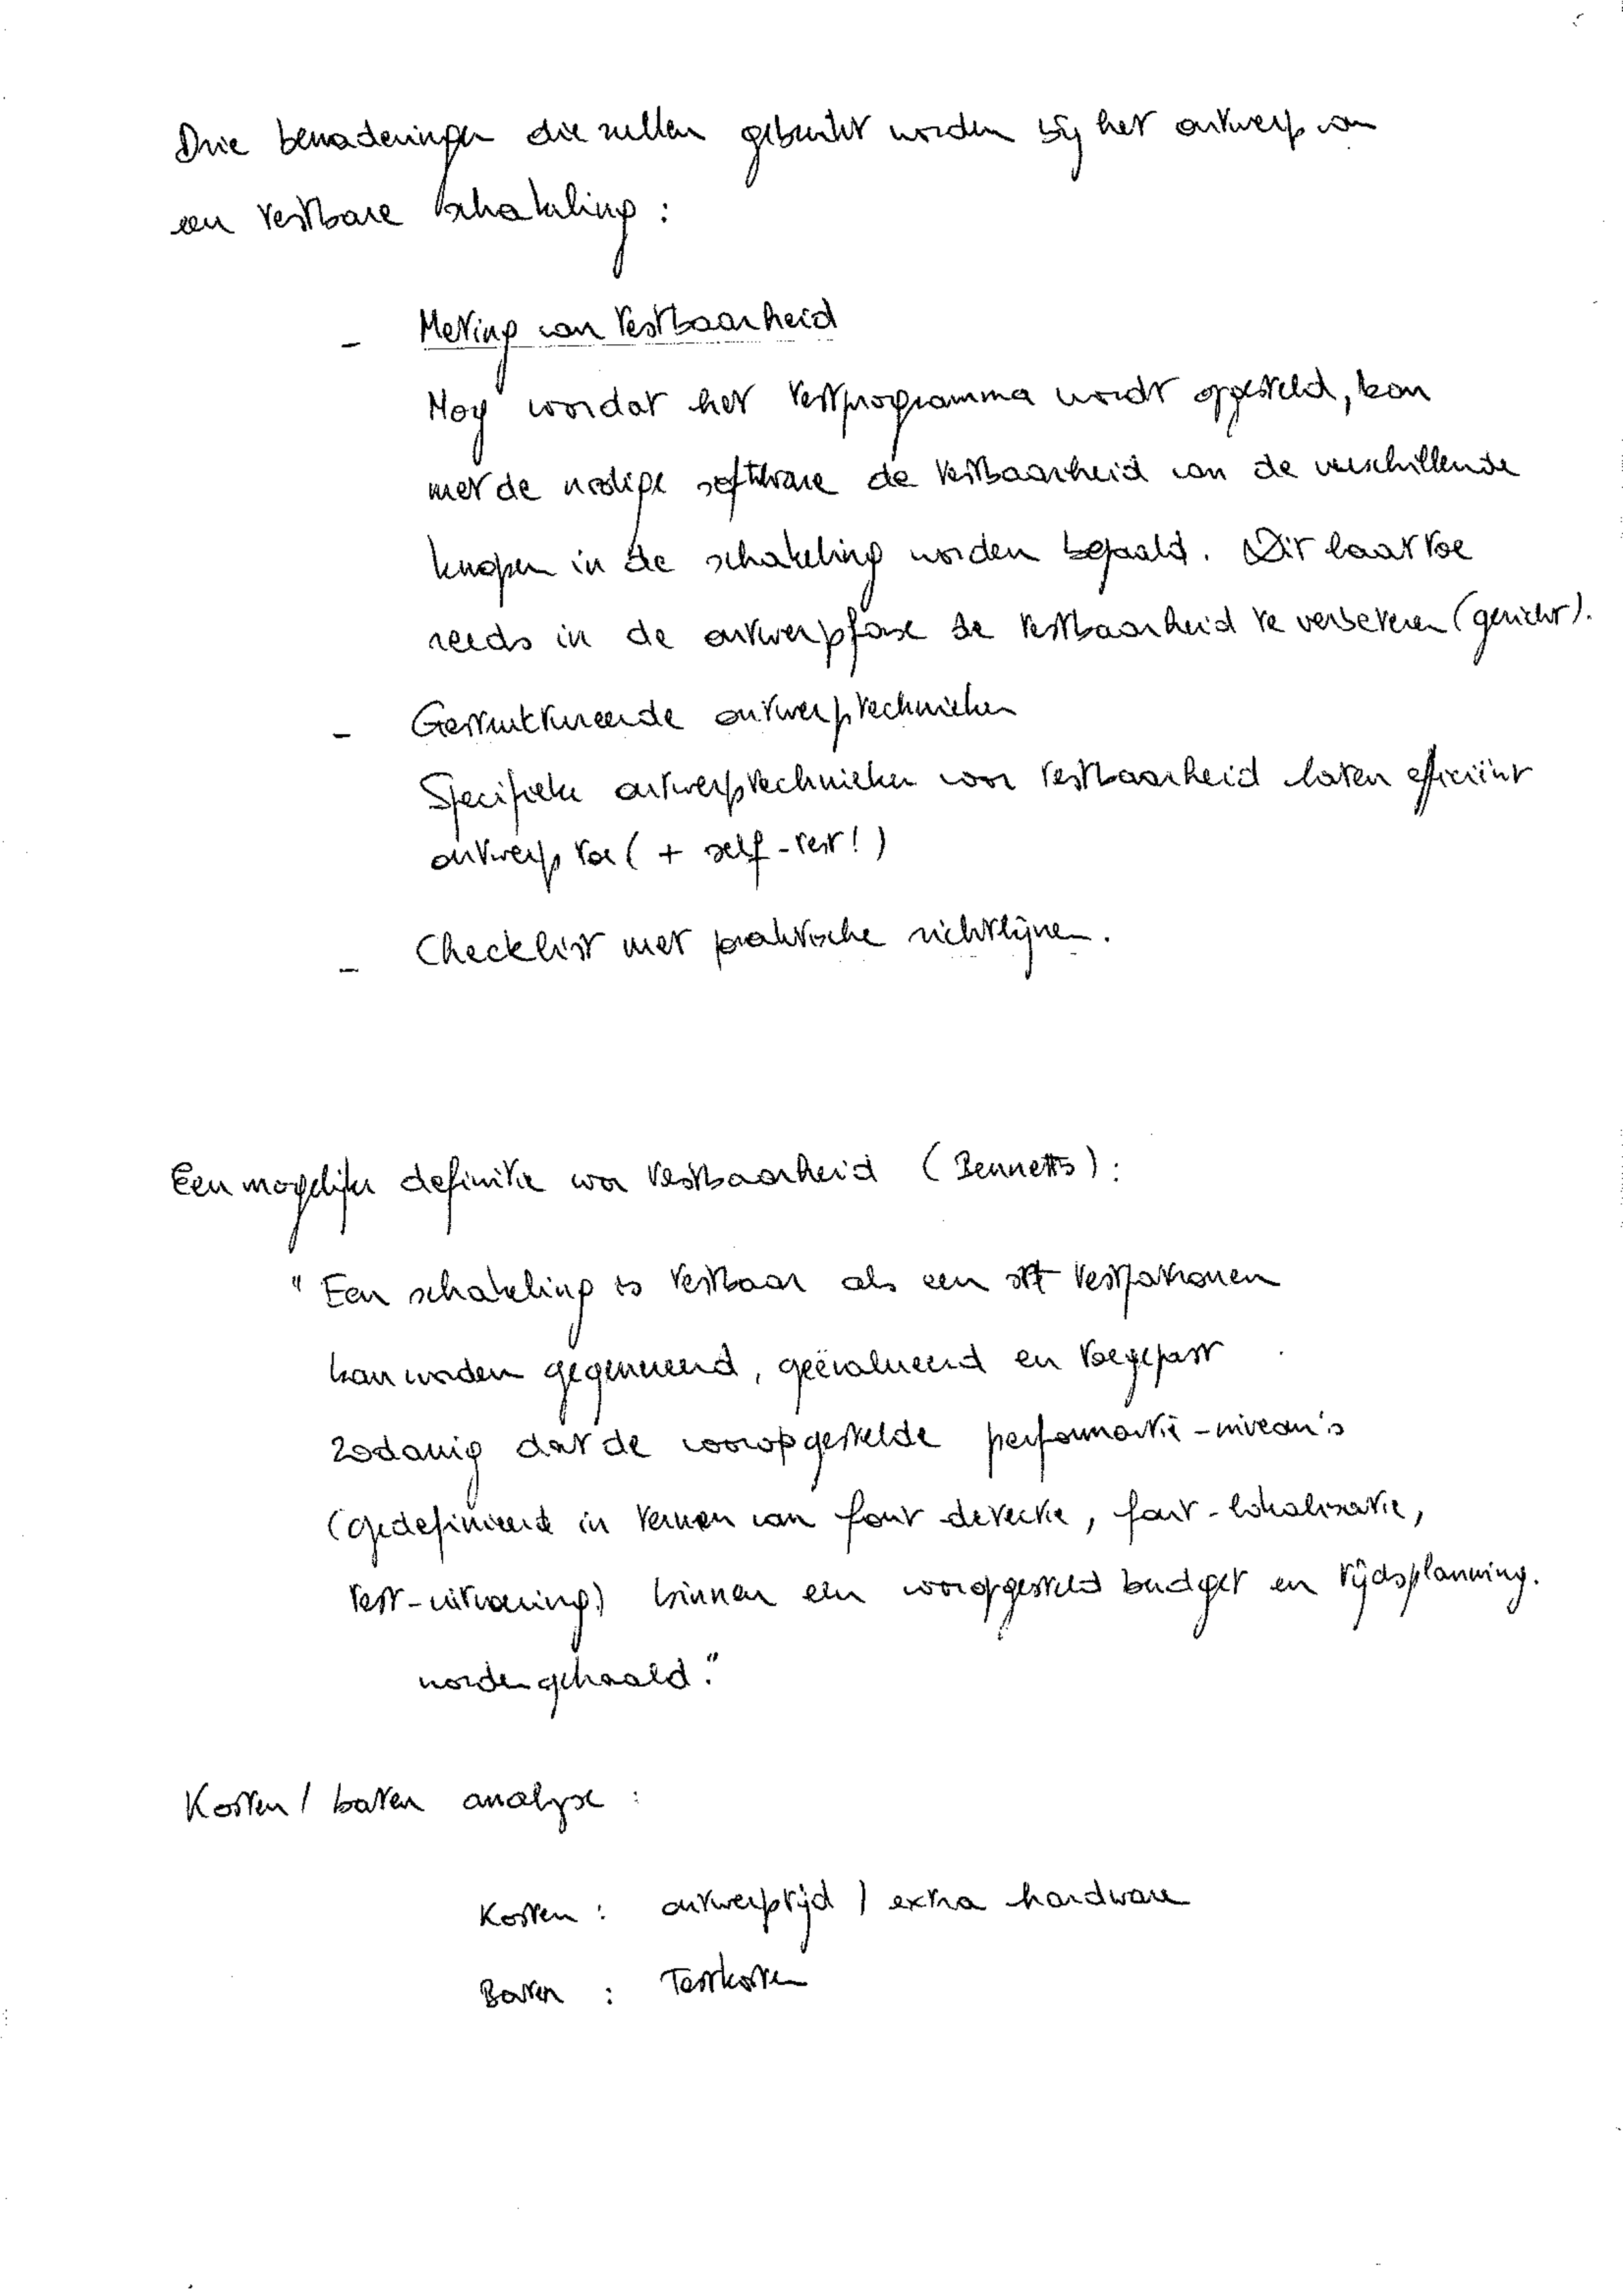 Drie benaderingen die zullen gebruikt worden bij het ontwerp van
een testbare schakeling :
- Meting van testbaarheid
Nog voordat het testprogramma wordt opgesteld, kan
met de nodige software de testbaarheid van de verschillende
knopen in de schakeling worden bepaald. Dit laat toe
reeds in de ontwerpfase de testbaarheid te verbeteren (gericht).
- Gestruktureerde ontwerptechnieken
Specifieke ontwerptechnieken voor testbaarheid laten efficiënt
ontwerp toe ( + self-test! )
- Checklist met praktische richtlijnen.
Een mogelijke definitie voor testbaarheid ( Bennetts ) :
" Een schakeling is testbaar als een set testpatronen
kan worden gegenereerd, geëvalueerd en toegepast
zodanig dat de vooropgestelde performantie-niveau's
(gedefinieerd in termen van fout detectie, fout-lokalisatie,
test-uitvoering) binnen een vooropgesteld budget en tijdsplanning.
worden gehaald."
Kosten / baten analyse :
Kosten : ontwerptijd / extra hardware
Baten : Testkosten